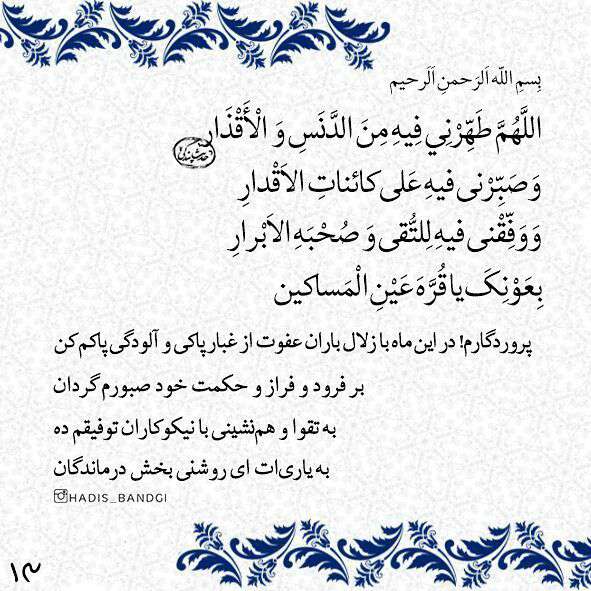 بِسمِ اللّه اَلرَحمنِ اَلَرحیم
اللَّهُمَّ طَهِّرْنِي فِيهِ مِنَ الدَّنَسِ وَ الْأَقْذَارِ
وَ صَبِّرْنی فیهِ عَلی کائناتِ الاَقْدارِ
وَ وَفِّقْنی فیهِ لِلتُّقی وَ صُحْبَهِ الاَبْرارِ
بِعَوْنِکَ یا قُرَّهَ عَیْنِ الْمَساکین
پروردگارم! در این ماه با زلال باران عفوت از غبار پاکی و آلودگی پاکم کن
بر فرود و فراز و حکمت خود صبورم گردان
به تقوا و هم‌نشینی با نیکوکاران توفیقم ده
به یاری‌ات ای روشنی بخش درماندگان
HADIS_BANDGI
۱۳